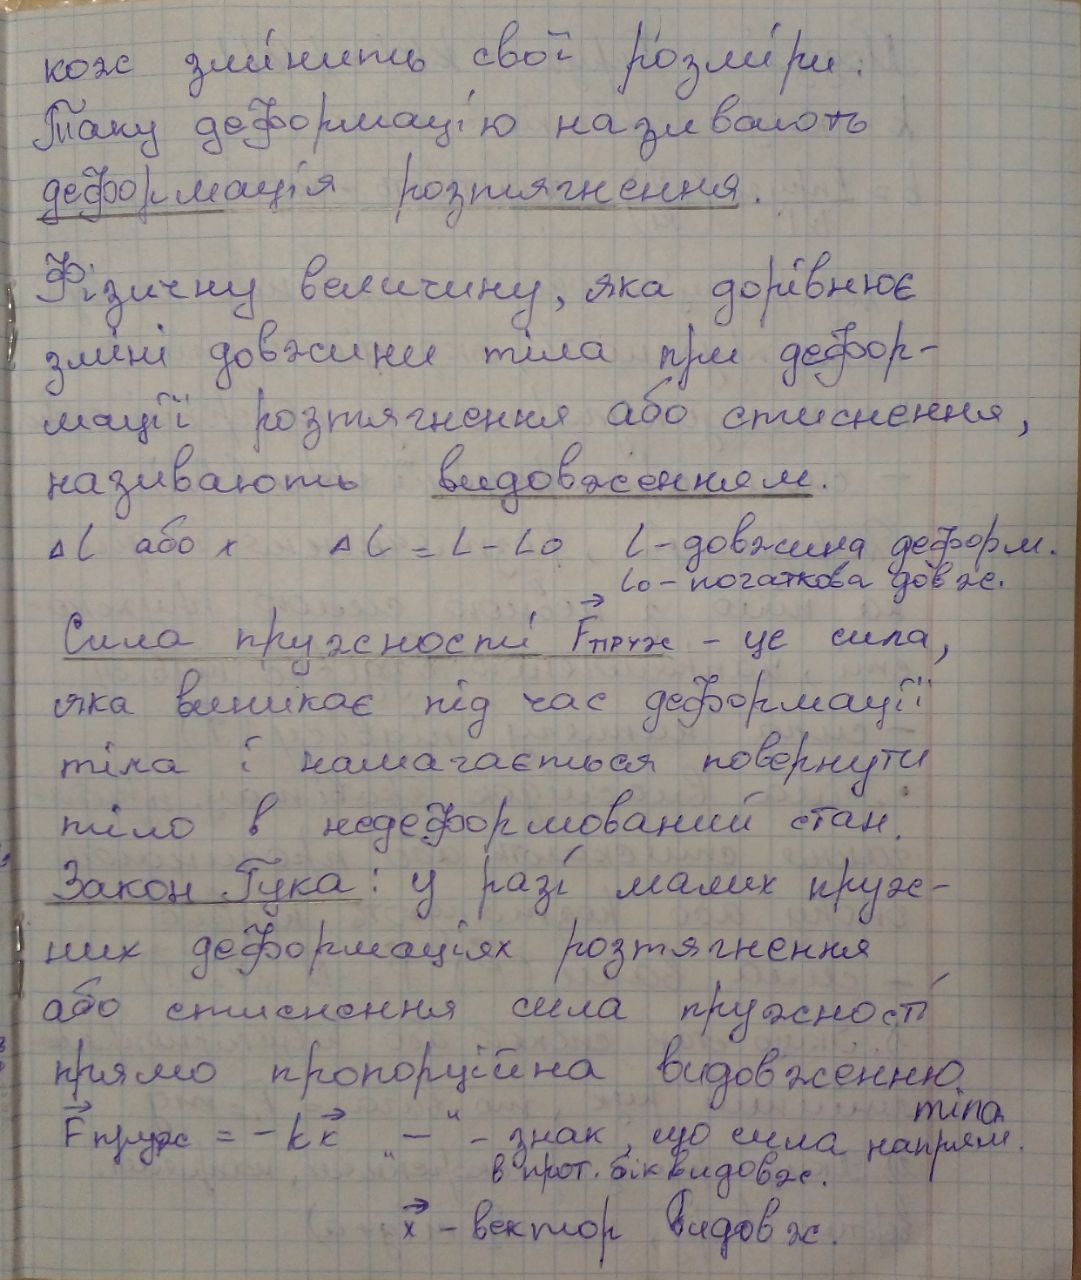 кож змінить свої розміри.
Таку деформацію називають
деформація розтягнення.
Фізичну величину, яка дорівнює
зміні довжини тіла при дефор-
мації розтягнення або стиснення,
називають видовженням.
ΔL або x ΔL = L - L₀, L - довжина деформ.
L₀ - початкова довж.
Сила пружності F⃗пруж - це сила,
яка виникає під час деформації
тіла і намагається повернути
тіло в недеформований стан.
Закон Гука: у разі малих пруж-
них деформаціях розтягнення
або стиснення сила пружності
прямо пропорційна видовженню
тіла
F⃗пруж = -kx⃗ „-“ - знак, що сила напрям.
в прот. бік видовж.
x⃗ - вектор видовж.